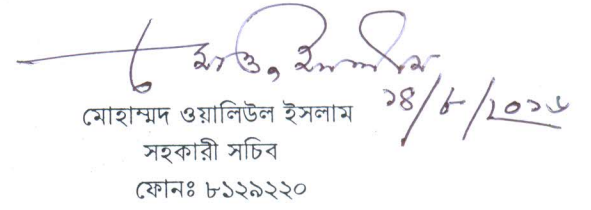 ১৪/৮/২০১৬
মোহাম্মদ ওয়ালিউল ইসলাম
সহকারী সচিব
ফোনঃ ৮১২৯২২০